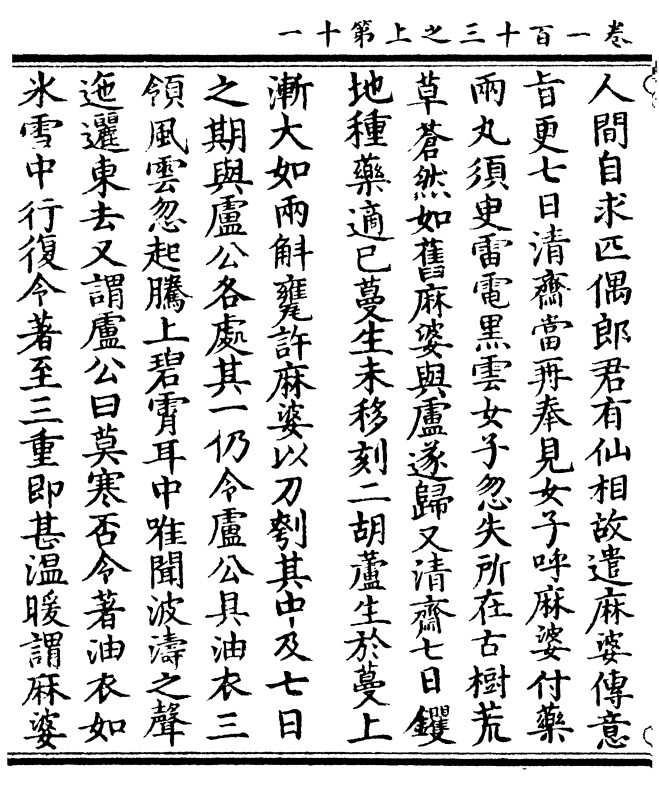 卷一百十三之上第十一
人間自求匹偶郎君有仙相故遣麻婆傳意
旨更七日清齋當再奉見女子呼麻婆付藥
兩丸須臾雷電黑雲女子忽失所在古樹荒
草蒼然如舊麻婆與盧遂歸又清齋七日钁
地種藥適已蔓生未移刻二胡蘆生於蔓上
漸大如兩斛甕許麻婆以刀刳其中及七日
之期與盧公各處其一仍令盧公具油衣三
領風雲忽起騰上碧霄耳中唯聞波濤之聲
迤邐東去又謂盧公曰莫寒否令著油衣如
氷雪中行復令著至三重即甚溫暖謂麻婆